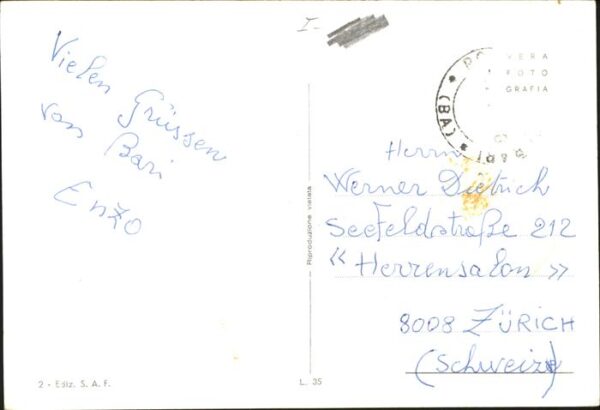 I-
Vielen
Grüssen
von Bari
Enzo
VERA
FOTO
GRAFIA
(BA)
Herrn
Werner Dietrich
Seefeldstraße 212
« Herrensalon »
8008 ZÜRICH
(Schweiz)
Riproduzione vietata
2 - Ediz. S. A. F.
L. 35